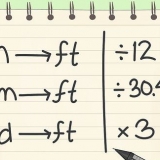 n → ft ÷12
m → ft ÷30.4
d → ft ×3